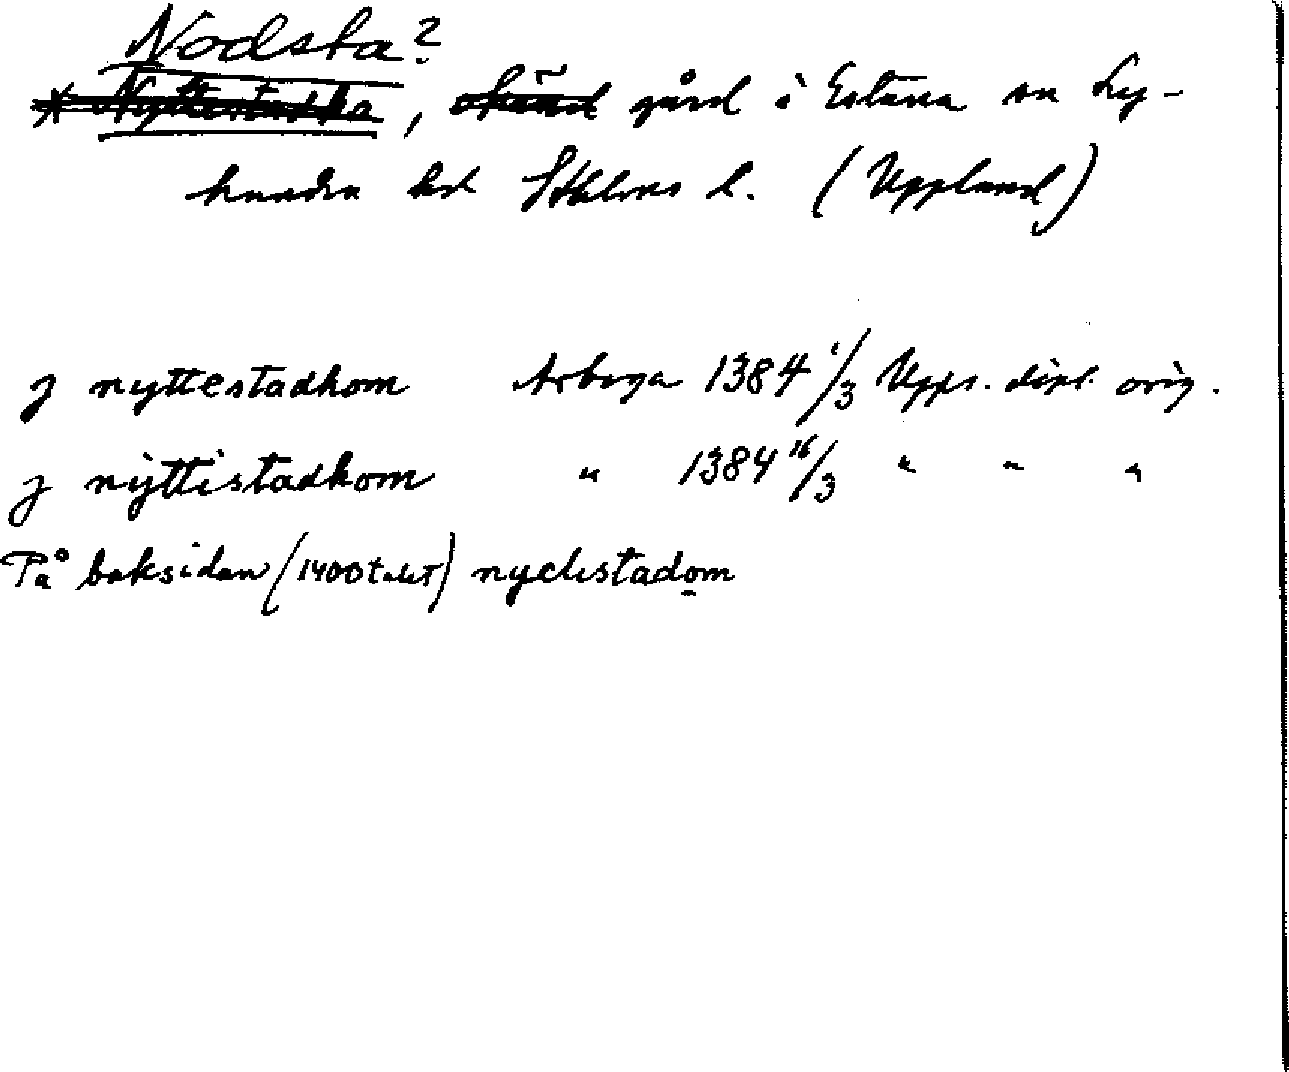 Nodsta?
* Nyttestadha, okänd gård i Estuna sn Ly-
hundra hd Sthlms l. (Uppland)
J nyttestadhom Arboga 1384 1/3 Upps. dipl. orig.
J nyttistadhom " 1384 16/3 " " "
På baksidan (1400talet) nyclistadom